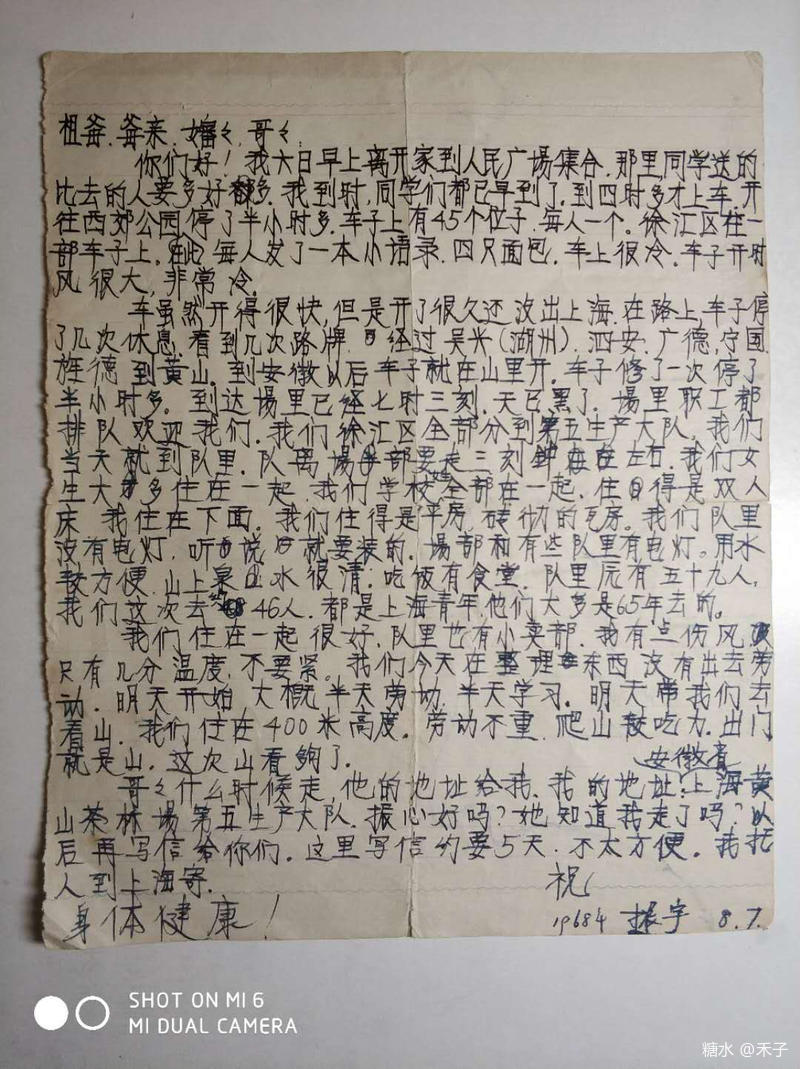 祖爷.爷亲.婶〻.哥〻.
你们好！我六日早上离开家到人民广场集合.那里同学送的
比去的人要多好多.我到时,同学们都已早到了.到四时多才上车.开
往西郊公园停了半小时多.车子上有45个位子.每人一个.徐汇区在一
部车子上.每人发了一本小语录.四只面包.车上很冷.车子开时
风很大,非常冷.
车虽然开得很快,但是开了很久还没出上海.在路上,车子停
了几次休息.看到几次路牌.经过吴兴(湖州).泗安.广德,宁国
旌德到黄山.到安徽以后车子就在山里开.车子修了一次停了
半小时多.到达場里已经七时三刻.天已黑了.場里职工都
排队欢迎我们.我们徐汇区全部分到第五生产大队.我们
当天就到队里.队离場部要走三刻钟左右.我们女
生大多住在一起.我们学校全部在一起.住得是双人
床.我住在下面.我们住得是平房.砖彻的瓦房.我们队里
没有电灯.听说就要装的.場部和有些队里有电灯.用水
较方便.山上泉水很清.吃饭有食堂.队里原有五十九人,
我们这次去46人.都是上海青年,他们大多是65年去的。
我们住在一起很好.队里也有小卖部.我有点伤风
只有几分温度.不要紧。我们今天在整理东西没有出去劳
动.明天开始,大概半天劳动.半天学习.明天带我们去
看山.我们住在400米高度.劳动不重.爬山较吃力.出门
就是山.这次山看夠了.
安徽省
哥〻什么时候走,他的地址给我.我的地址:上海黄
山茶林場第五生产大队.振心好吗?她知道我走了吗?以
后再写信给你们.这里写信约要5天.不太方便。我托
人到上海寄.
祝
身体健康!
1968 4 振宇 8.7.
SHOT ON MI 6
MI DUAL CAMERA
糖水 @禾子